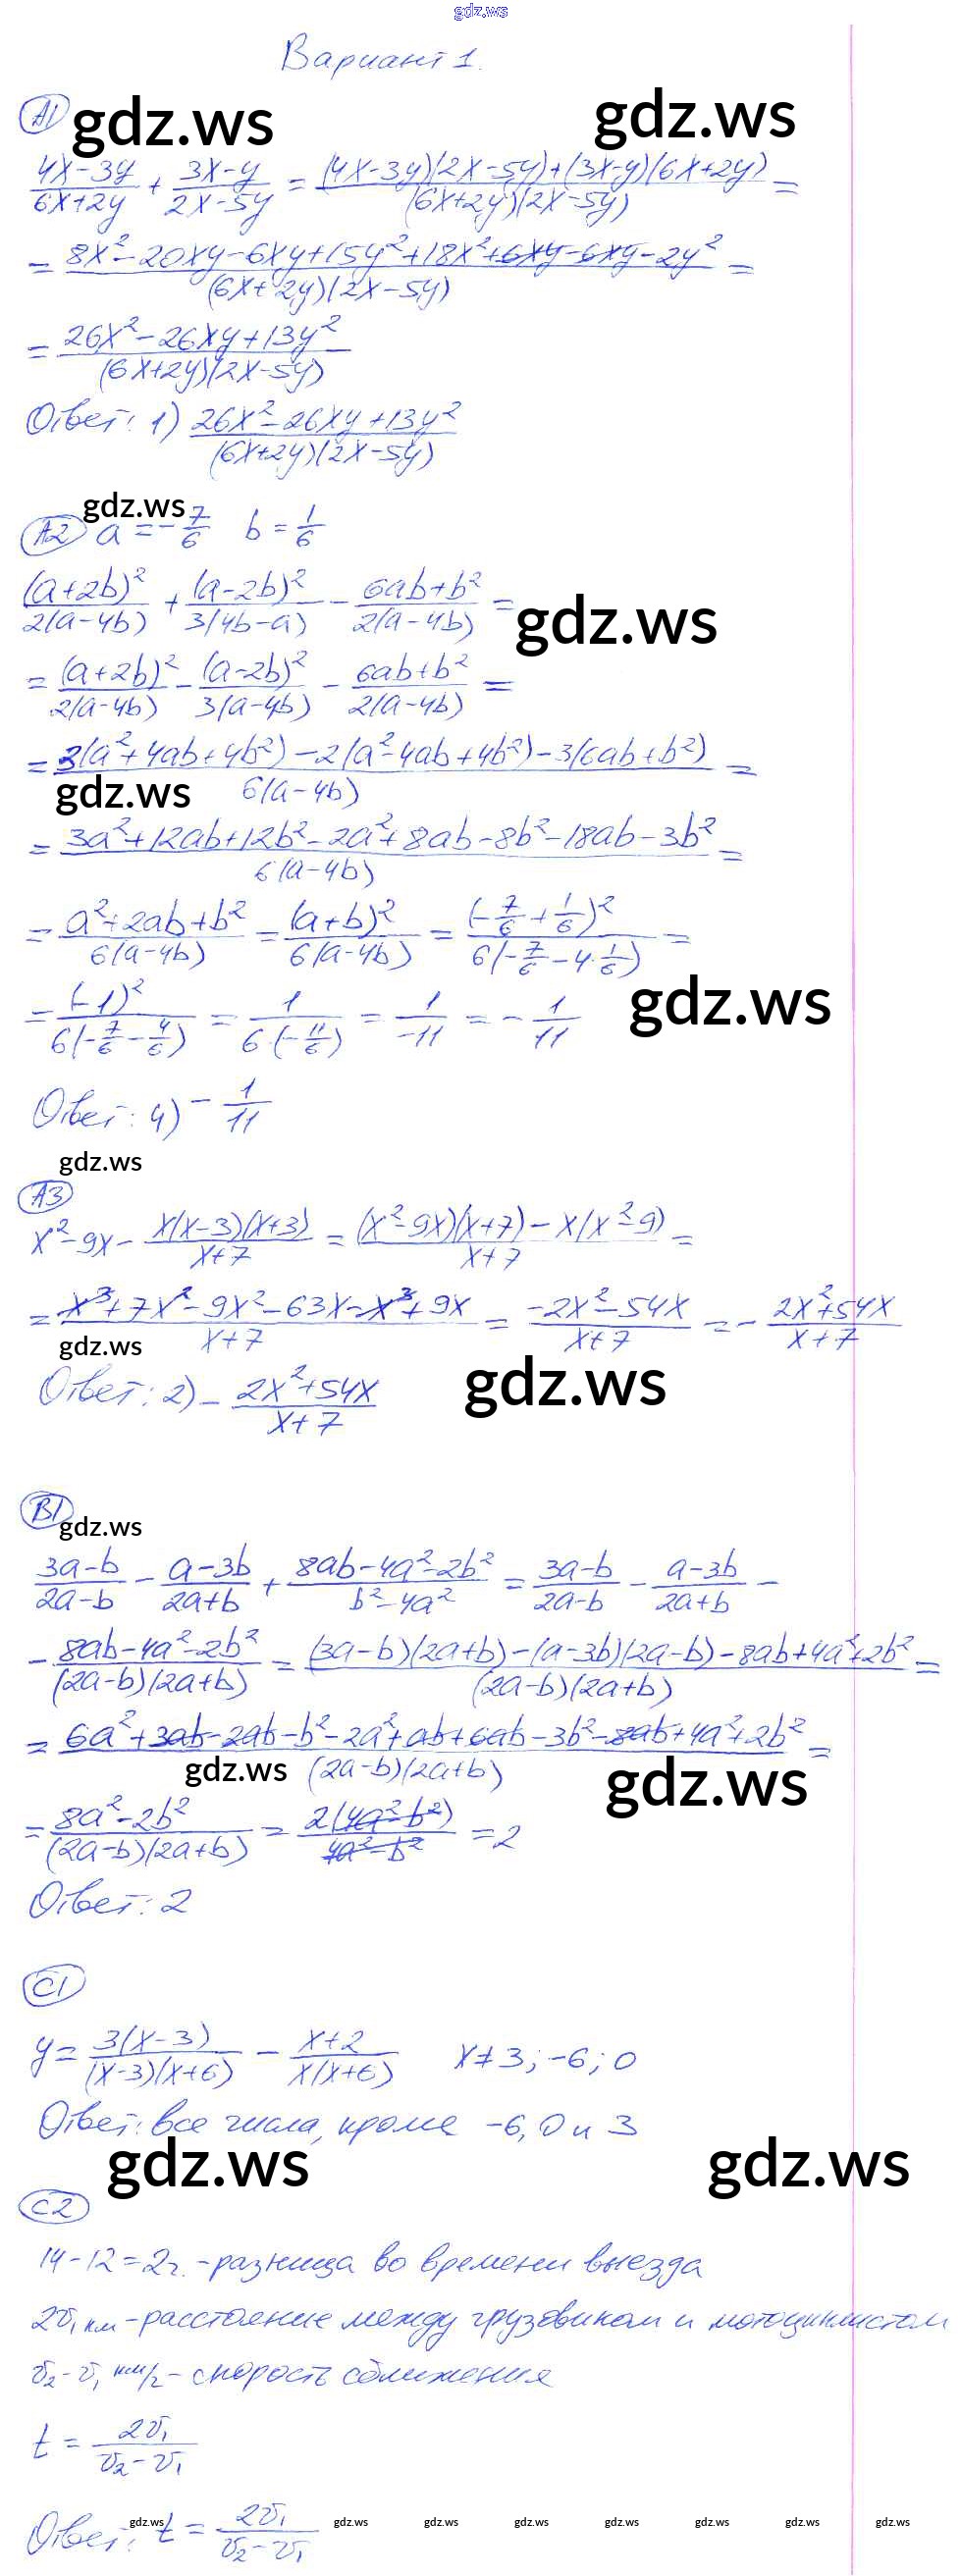 gdz.ws
Вариант 1.
A1 gdz.ws gdz.ws
(4x-3y)/(6x+2y) + (3x-y)/(2x-5y) = ((4x-3y)(2x-5y)+(3x-y)(6x+2y))/((6x+2y)(2x-5y)) =
= (8x²-20xy-6xy+15y²+18x²+6xy-6xy-2y²)/((6x+2y)(2x-5y)) =
= (26x²-26xy+13y²)/((6x+2y)(2x-5y))
Ответ: 1) (26x²-26xy+13y²)/((6x+2y)(2x-5y))
gdz.ws
A2 a = -7/6 b = 1/6
(a+2b)²/(2(a-4b)) + (a-2b)²/(3(4b-a)) - (6ab+b²)/(2(a-4b)) =
gdz.ws
= (a+2b)²/(2(a-4b)) - (a-2b)²/(3(a-4b)) - (6ab+b²)/(2(a-4b)) =
= (3(a²+4ab+4b²)-2(a²-4ab+4b²)-3(6ab+b²))/(6(a-4b)) =
gdz.ws
= (3a²+12ab+12b²-2a²+8ab-8b²-18ab-3b²)/(6(a-4b)) =
= (a²+2ab+b²)/(6(a-4b)) = (a+b)²/(6(a-4b)) = (-7/6+1/6)²/(6(-7/6-4·1/6)) =
= (-1)²/(6(-7/6-4/6)) = 1/(6·(-11/6)) = 1/-11 = -1/11
gdz.ws
Ответ: 4) -1/11
gdz.ws
A3
x²-9x - x(x-3)(x+3)/(x+7) = ((x²-9x)(x+7)-x(x²-9))/(x+7) =
= (x³+7x²-9x²-63x-x³+9x)/(x+7) = (-2x²-54x)/(x+7) = -(2x²+54x)/(x+7)
gdz.ws
Ответ: 2) -(2x²+54x)/(x+7)
gdz.ws
B1
gdz.ws
(3a-b)/(2a-b) - (a-3b)/(2a+b) + (8ab-4a²-2b²)/(b²-4a²) = (3a-b)/(2a-b) - (a-3b)/(2a+b) -
- (8ab-4a²-2b²)/((2a-b)(2a+b)) = ((3a-b)(2a+b)-(a-3b)(2a-b)-8ab+4a²+2b²)/((2a-b)(2a+b)) =
= (6a²+3ab-2ab-b²-2a²+ab+6ab-3b²-8ab+4a²+2b²)/((2a-b)(2a+b)) =
gdz.ws gdz.ws
= (8a²-2b²)/((2a-b)(2a+b)) = 2(4a²-b²)/(4a²-b²) = 2
Ответ: 2
C1
y = 3(x-3)/((x-3)(x+6)) - (x+2)/(x(x+6)) x≠3; -6; 0
Ответ: все числа, кроме -6, 0 и 3
gdz.ws gdz.ws
C2
14-12=2ч. - разница во времени выезда
2v₁ км - расстояние между грузовиком и мотоциклистом
v₂-v₁ км/ч - скорость сближения
t = 2v₁/(v₂-v₁)
Ответ: t = 2v₁/(v₂-v₁)
gdz.ws gdz.ws gdz.ws gdz.ws gdz.ws gdz.ws gdz.ws gdz.ws